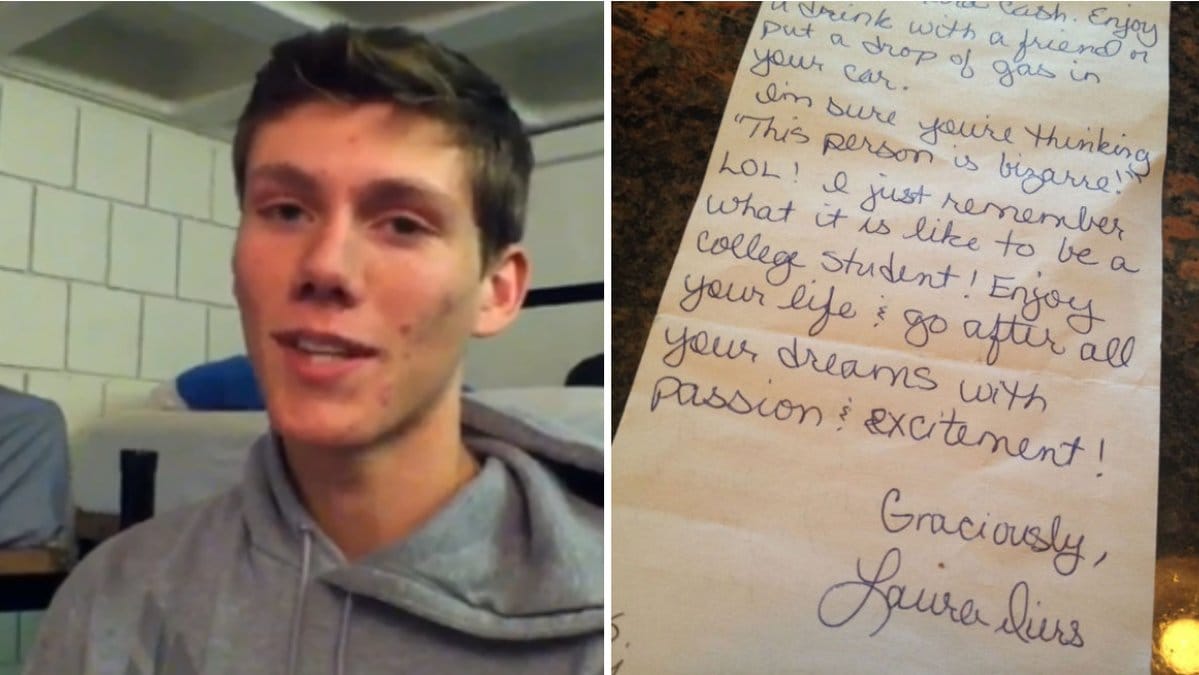 Cash. Enjoy
a drink with a friend or
put a drop of gas in
your car.
I'm sure you're thinking
"This person is bizarre!"
LOL! I just remember
what it is like to be a
college student! Enjoy
your life & go after all
your dreams with
passion & excitement!
Graciously,
Laura Diers